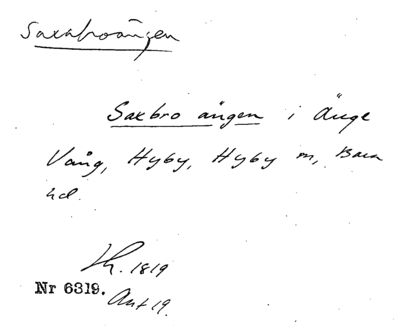 Saxabroängen
Saxbro ängen i Änge
Vång, Hyby, Hyby sn, Bara
hd.
Lh. 1819
Nr 6319. Ant 19.